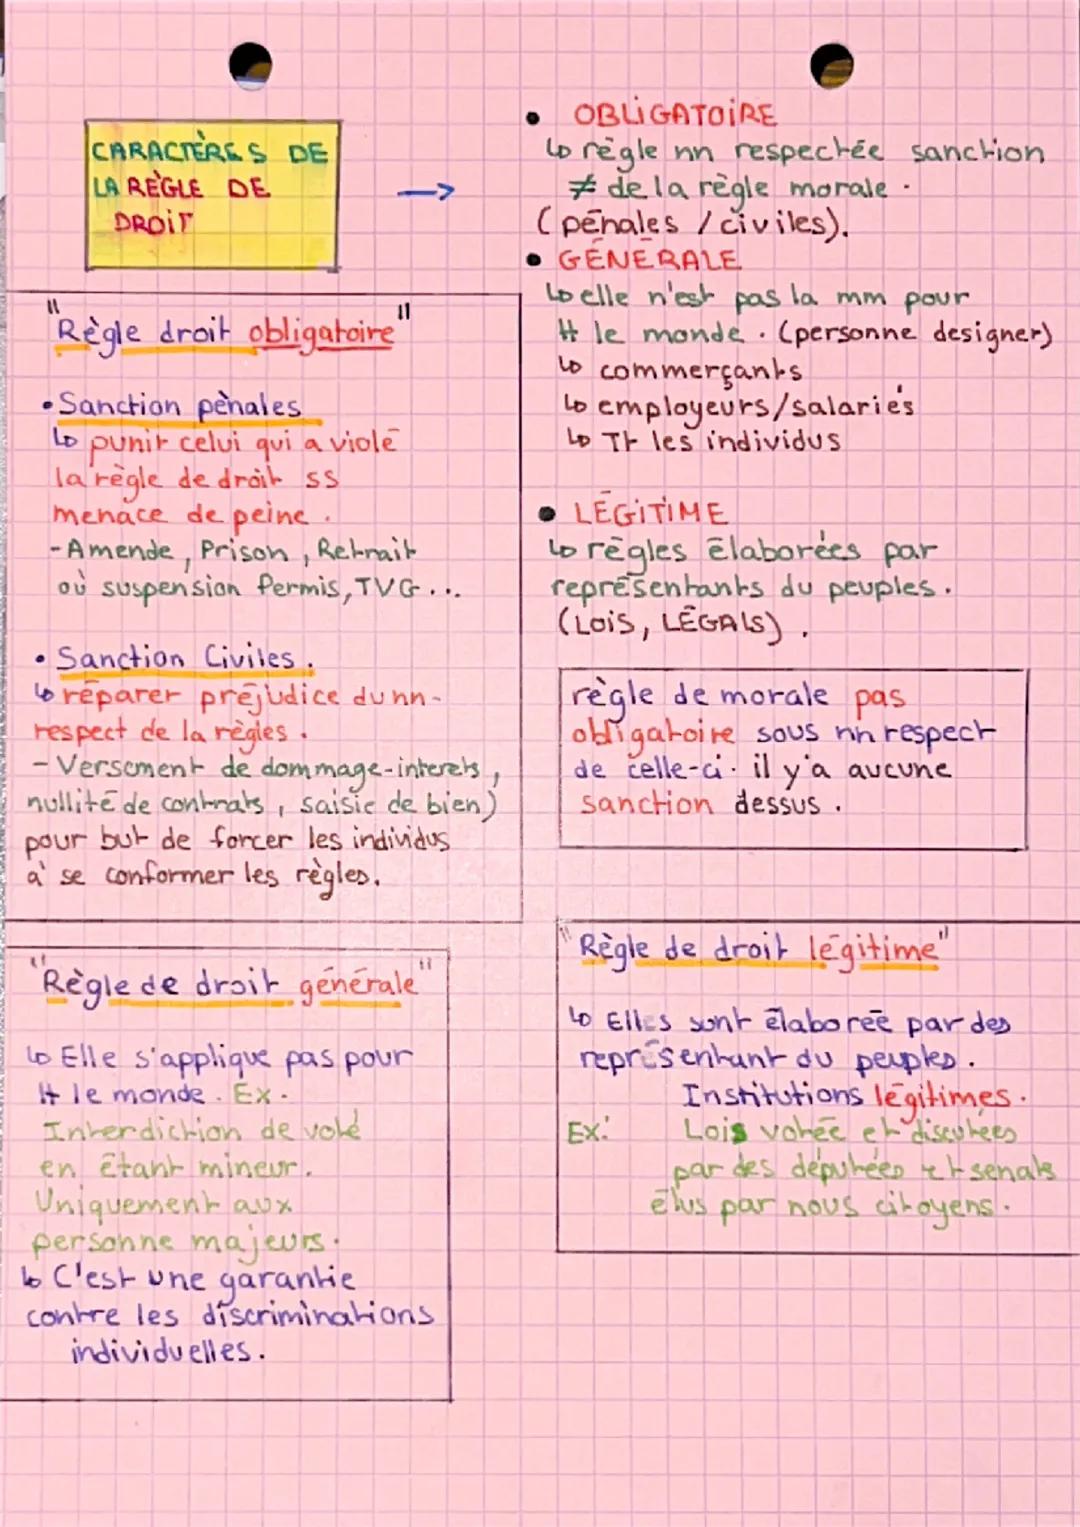 CARACTÈRES DE
LA RÈGLE DE
DROIT
• OBLIGATOIRE
↳ règle nn respectée sanction
≠ de la règle morale.
(pénales / civiles).
• GÉNÉRALE
↳ elle n'est pas la mm pour
tt le monde. (personne designer)
↳ commerçants
↳ employeurs/salariés
↳ Tt les individus
• LÉGITIME
↳ règles élaborées par
représentants du peuples.
(LOIS, LÉGALS).
règle de morale pas
obligatoire sous nn respect
de celle-ci. il y'a aucune
sanction dessus.
"Règle droit obligatoire"
• Sanction pènales
↳ punir celui qui a violé
la règle de droit ss
menace de peine.
- Amende, Prison, Retrait
où suspension Permis, TVG...
• Sanction Civiles.
↳ réparer préjudice du nn-
respect de la règles.
- Versement de dommage-interets,
nullité de contrats, saisie de bien)
pour but de forcer les individus
à se conformer les règles.
"Règle de droit générale"
↳ Elle s'applique pas pour
tt le monde. Ex.
Interdiction de voté
en étant mineur.
Uniquement aux
personne majeurs.
↳ C'est une garantie
contre les discriminations
individuelles.
"Règle de droit légitime"
↳ Elles sont élaboreé par des
représentant du peuples.
Institutions légitimes.
Ex: Lois votée et discutées
par des députées et senats
élus par nous citoyens.